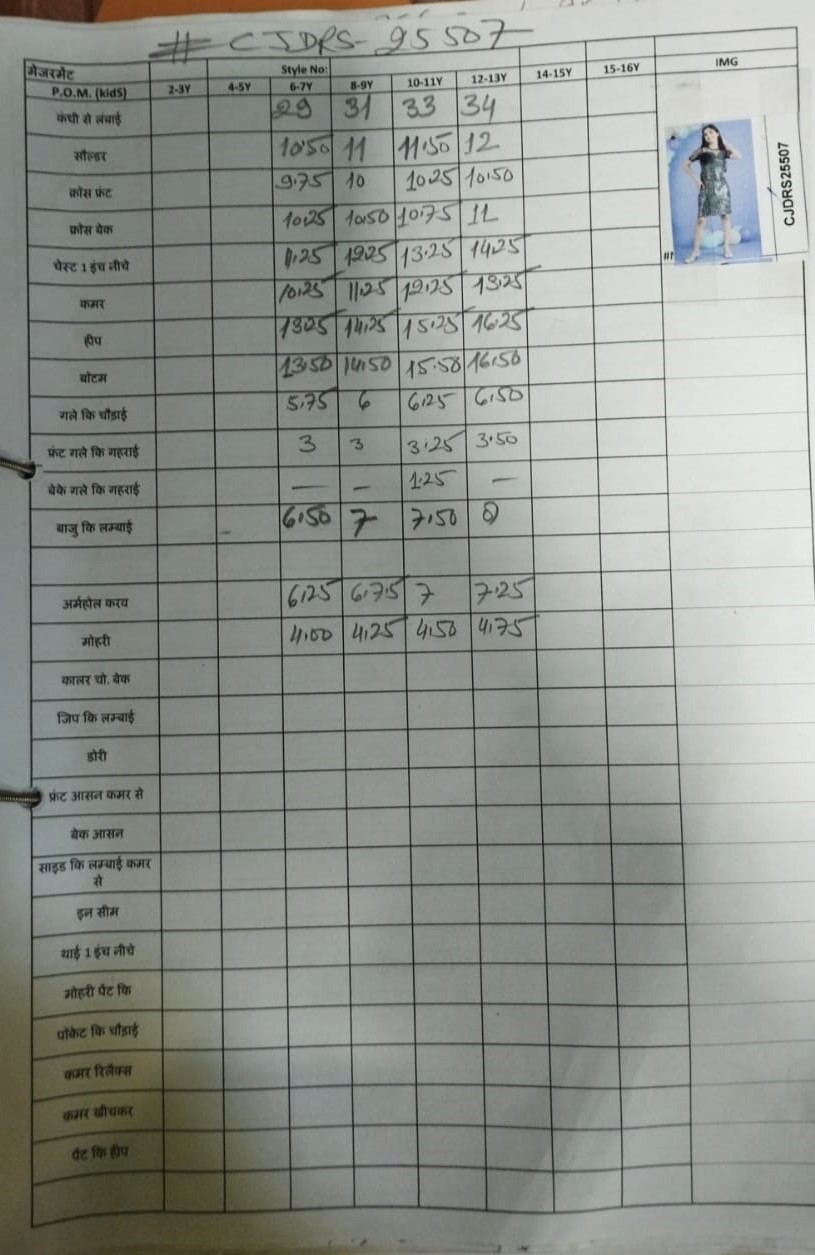 # CJDRS-25507
मेजरमेंट Style No:
P.O.M. (kidS) 2-3Y 4-5Y 6-7Y 8-9Y 10-11Y 12-13Y 14-15Y 15-16Y IMG
कंधी से लंबाई 29 31 33 34
सौल्डर 10.50 11 11.50 12
क्रॉस फ्रंट 9.75 10 10.25 10.50
क्रॉस बेक 10.25 10.50 10.75 11
चेस्ट 1 इंच नीचे 11.25 12.25 13.25 14.25
कमर 10.25 11.25 12.25 13.25
हीप 13.25 14.25 15.25 16.25
बोटम 13.50 14.50 15.50 16.50
गले कि चौड़ाई 5.75 6 6.25 6.50
फ्रंट गले कि गहराई 3 3 3.25 3.50
बेके गले कि गहराई — – 1.25 –
बाजु कि लम्बाई - 6.50 7 7.50 8
अर्महोल करव 6.25 6.75 7 7.25
मोहरी 4.00 4.25 4.50 4.75
कालर चो. बेक
जिप कि लम्बाई
डोरी
फ्रंट आसन कमर से
बेक आसन
साइड कि लम्बाई कमर
से
इन सीम
थाई 1 इंच नीचे
मोहरी पेंट कि
पॉकेट कि चौड़ाई
कमर रिलैक्स
कमर खीचकर
पेंट कि हीप
CJDRS25507